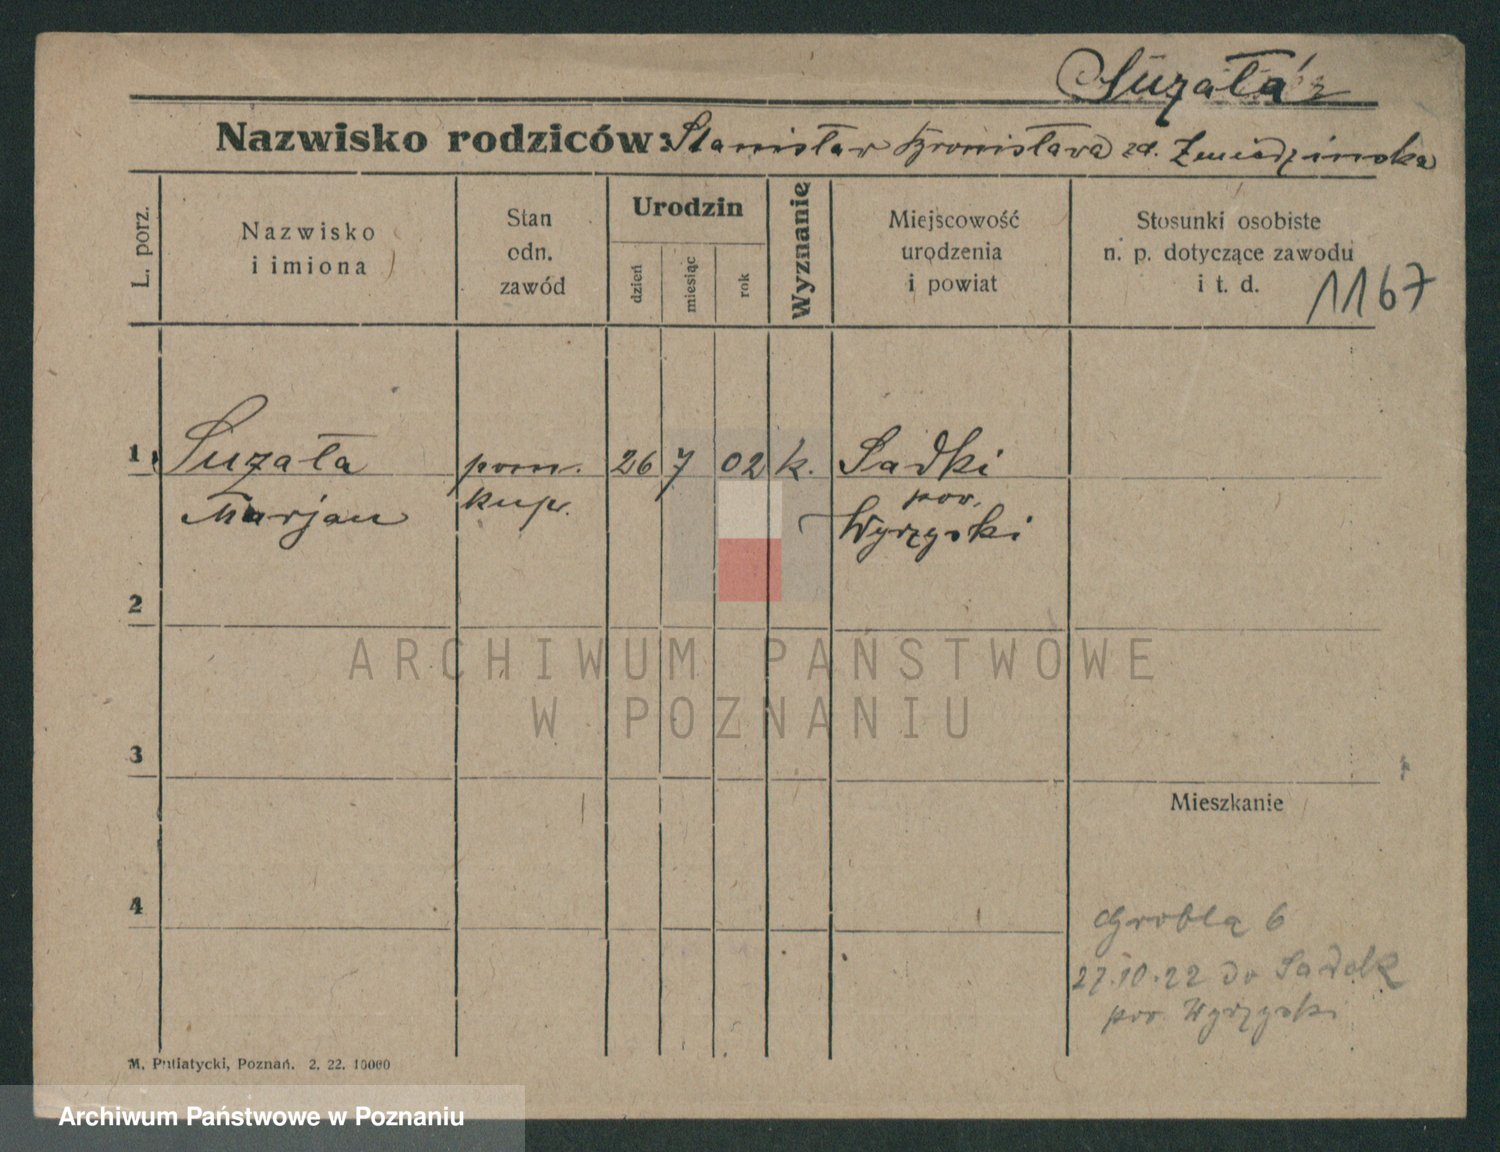 Suzała
Nazwisko rodziców: Stanisław Bronisława zd.
L. porz.
Nazwisko
i imiona
Stan
odn.
zawód
Urodzin
dzień
miesiąc
rok
Wyznanie
Miejscowość
urodzenia
i powiat
Stosunki osobiste
n. p. dotyczące zawodu
i t. d.
1167
1 Suzała pom. 26 7 02 k. Sadki
Marjan kupr. pow.
Wyrzyski
2
ARCHIWUM PAŃSTWOWE
W POZNANIU
3
Mieszkanie
4
Grobla 6
27.10.22 do Sadek
pow Wyrzyski
M. Putiatycki, Poznań. 2. 22. 10000
Archiwum Państwowe w Poznaniu